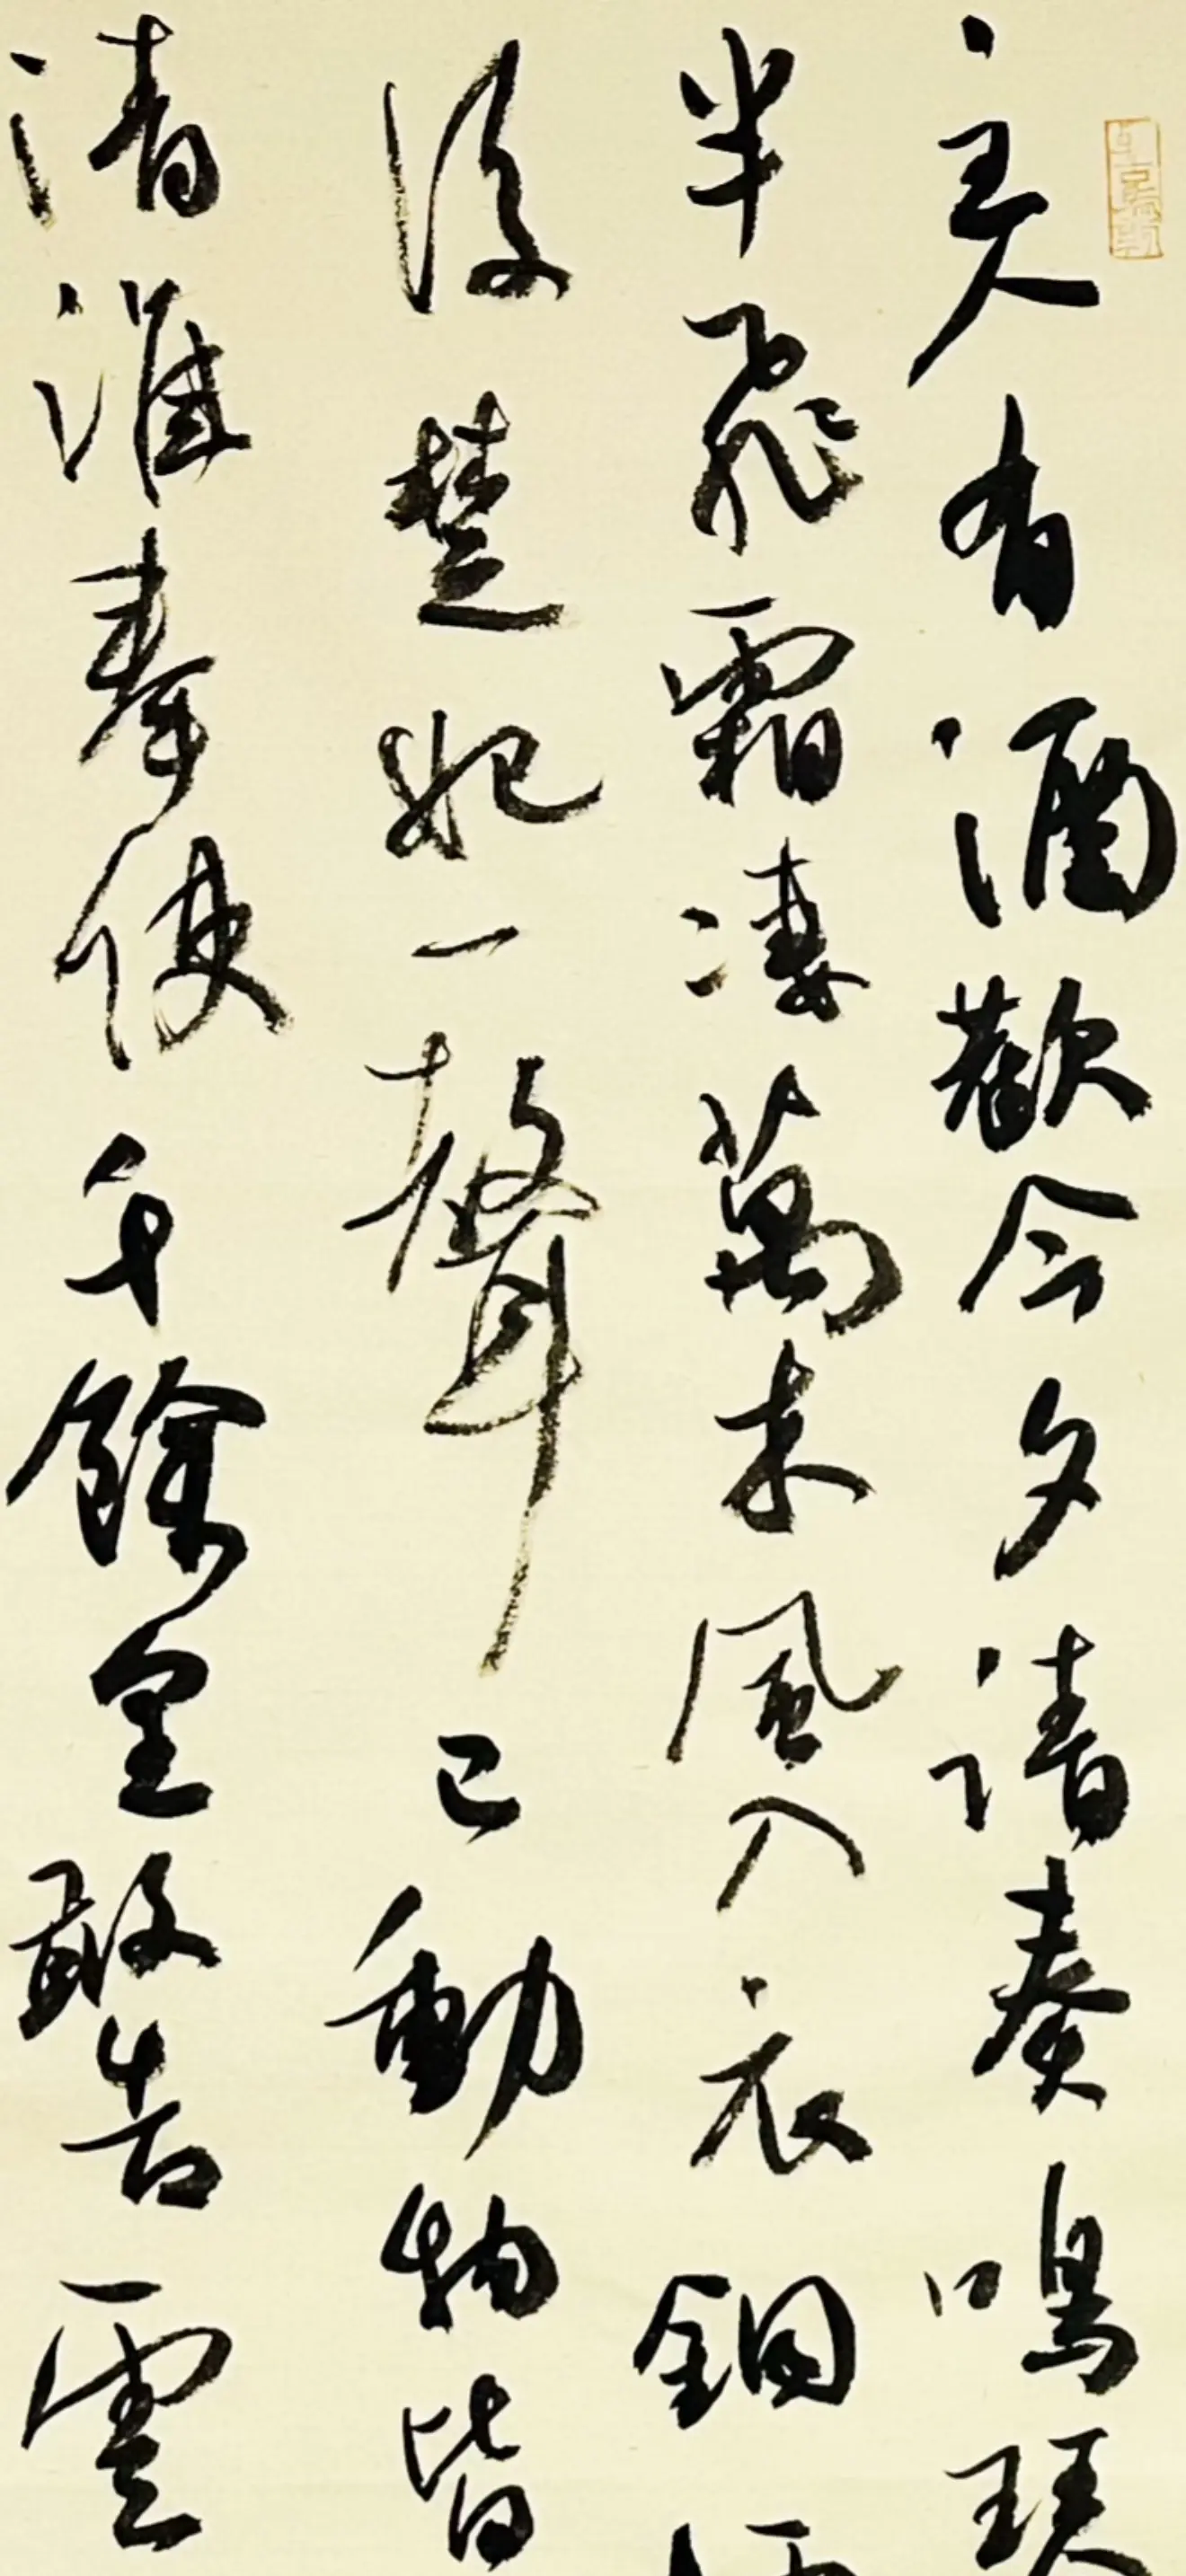 主人有酒歡今夕請奏鳴琴
半飛霜淒萬木風入衣銅
後楚妃一聲已動物皆
清淮奉使千餘里敢告雲